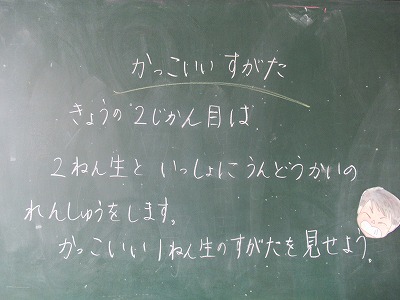 かっこいい すがた
きょうの 2じかん目は
2ねん生と いっしょに うんどうかいの
れんしゅうをします。
かっこいい 1ねん生の すがたを 見せよう。